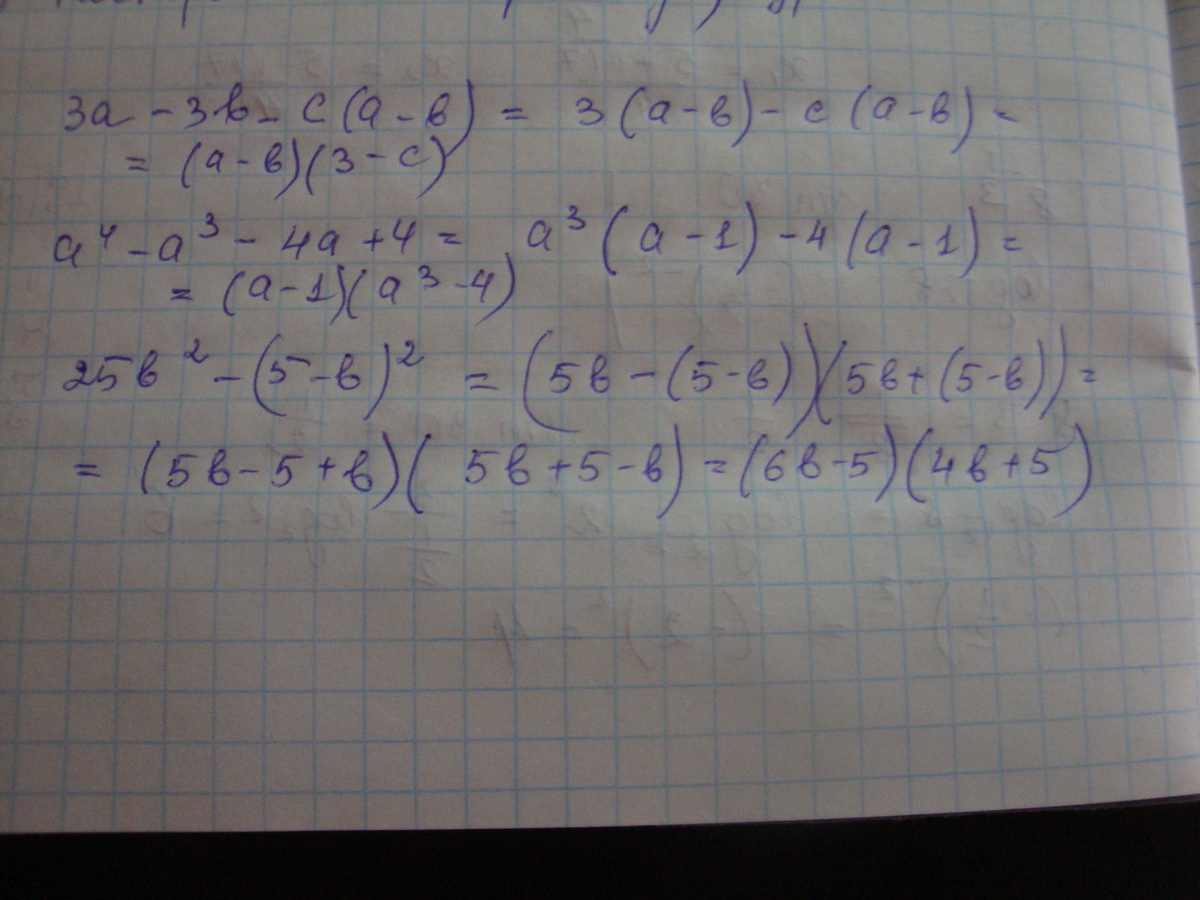 3a - 3b - c(a - b) = 3(a - b) - c(a - b) =
= (a - b)(3 - c)
a⁴ - a³ - 4a + 4 = a³(a - 1) - 4(a - 1) =
= (a - 1)(a³ - 4)
25b² - (5 - b)² = (5b - (5 - b))(5b + (5 - b)) =
= (5b - 5 + b)(5b + 5 - b) = (6b - 5)(4b + 5)